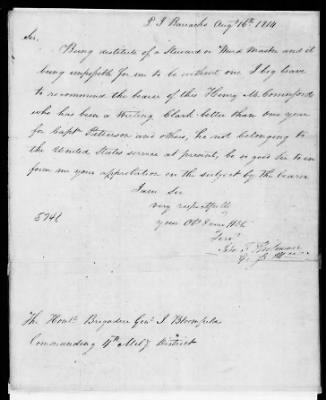 P I Barracks Augt 16th 1814
Sir,
Being destitute of a Steward or Ward Master and it
being impossible for me to be without one I beg leave
to recommend the bearer of this Henry M. Commford
who has been a Writing Clark better than one year
for Capt Peterson and others, he not belonging to
the United States service at present, be so good Sir to in
form me your approbation on the subject by the bearer
I am Sir
very respectfully
your Obt Humble
Servt
594b
The Honbl Brigadier Genl J Bloomfield
Commanding 4th Mily District